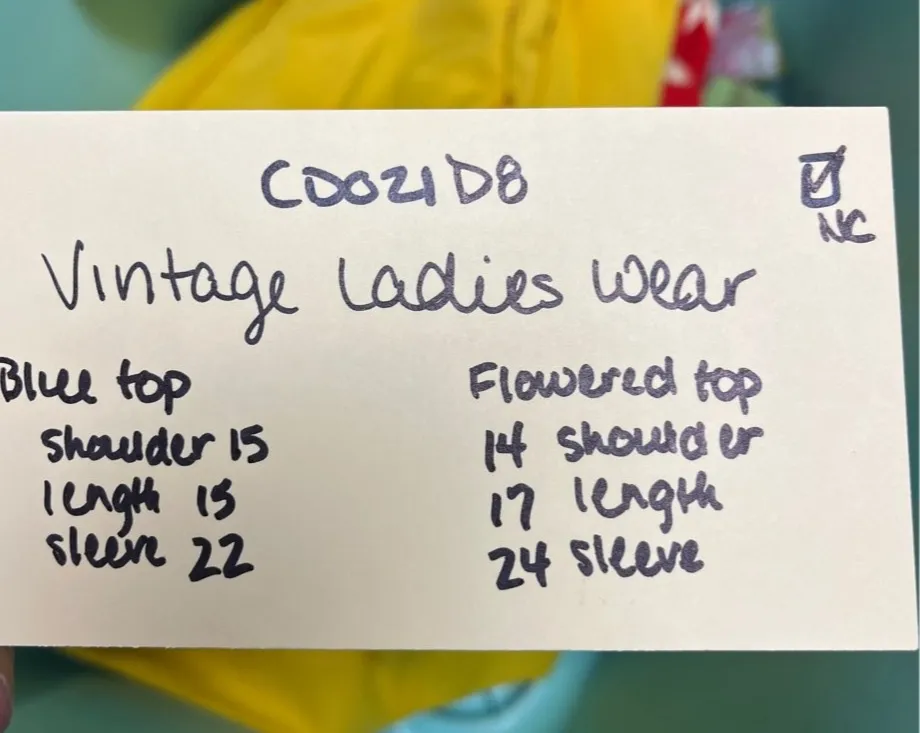 CD021D8
☑
NC
Vintage Ladies Wear
Blue top
shoulder 15
length 15
sleeve 22
Flowered top
14 shoulder
17 length
24 sleeve